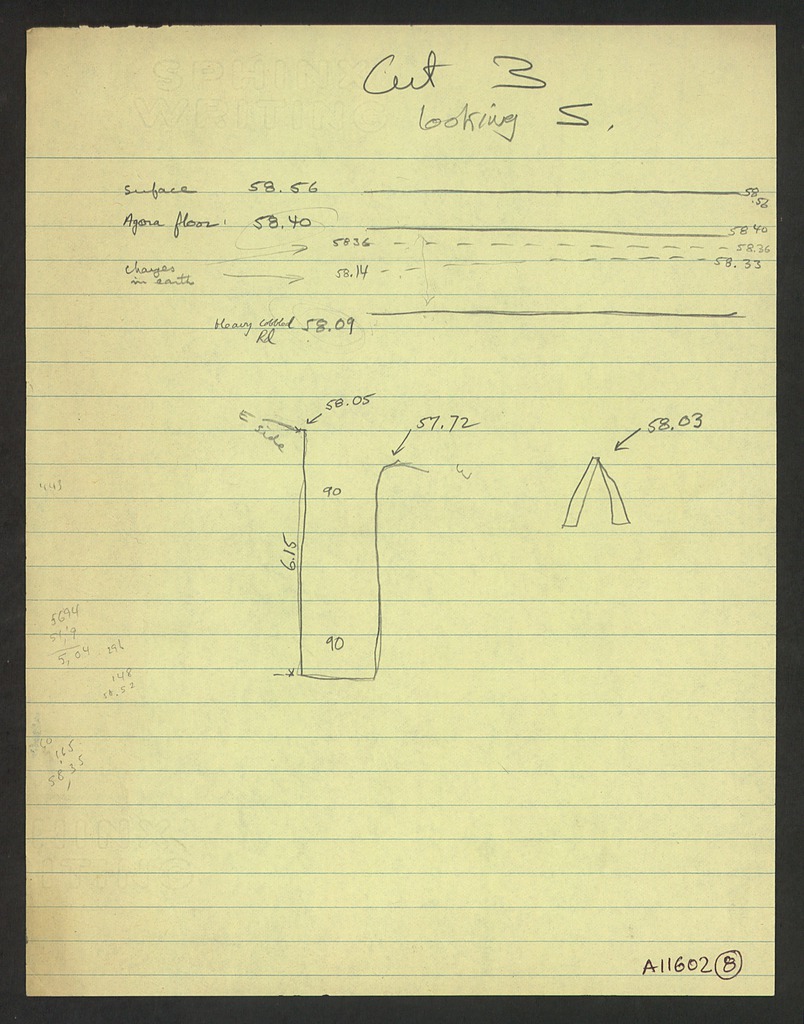 SPHINX
WRITING
Cut 3
looking S.
Surface 58.56 58.56
Agora floor: 58.40 58.40
58.36 58.36
changes 58.14 58.33
in earth
Heavy cobbled 58.09
Rd
58.05
E side
57.72
58.03
443
90
6.15
5694
5,04 .296
90
148
58.52
165
58,35
A11602 8